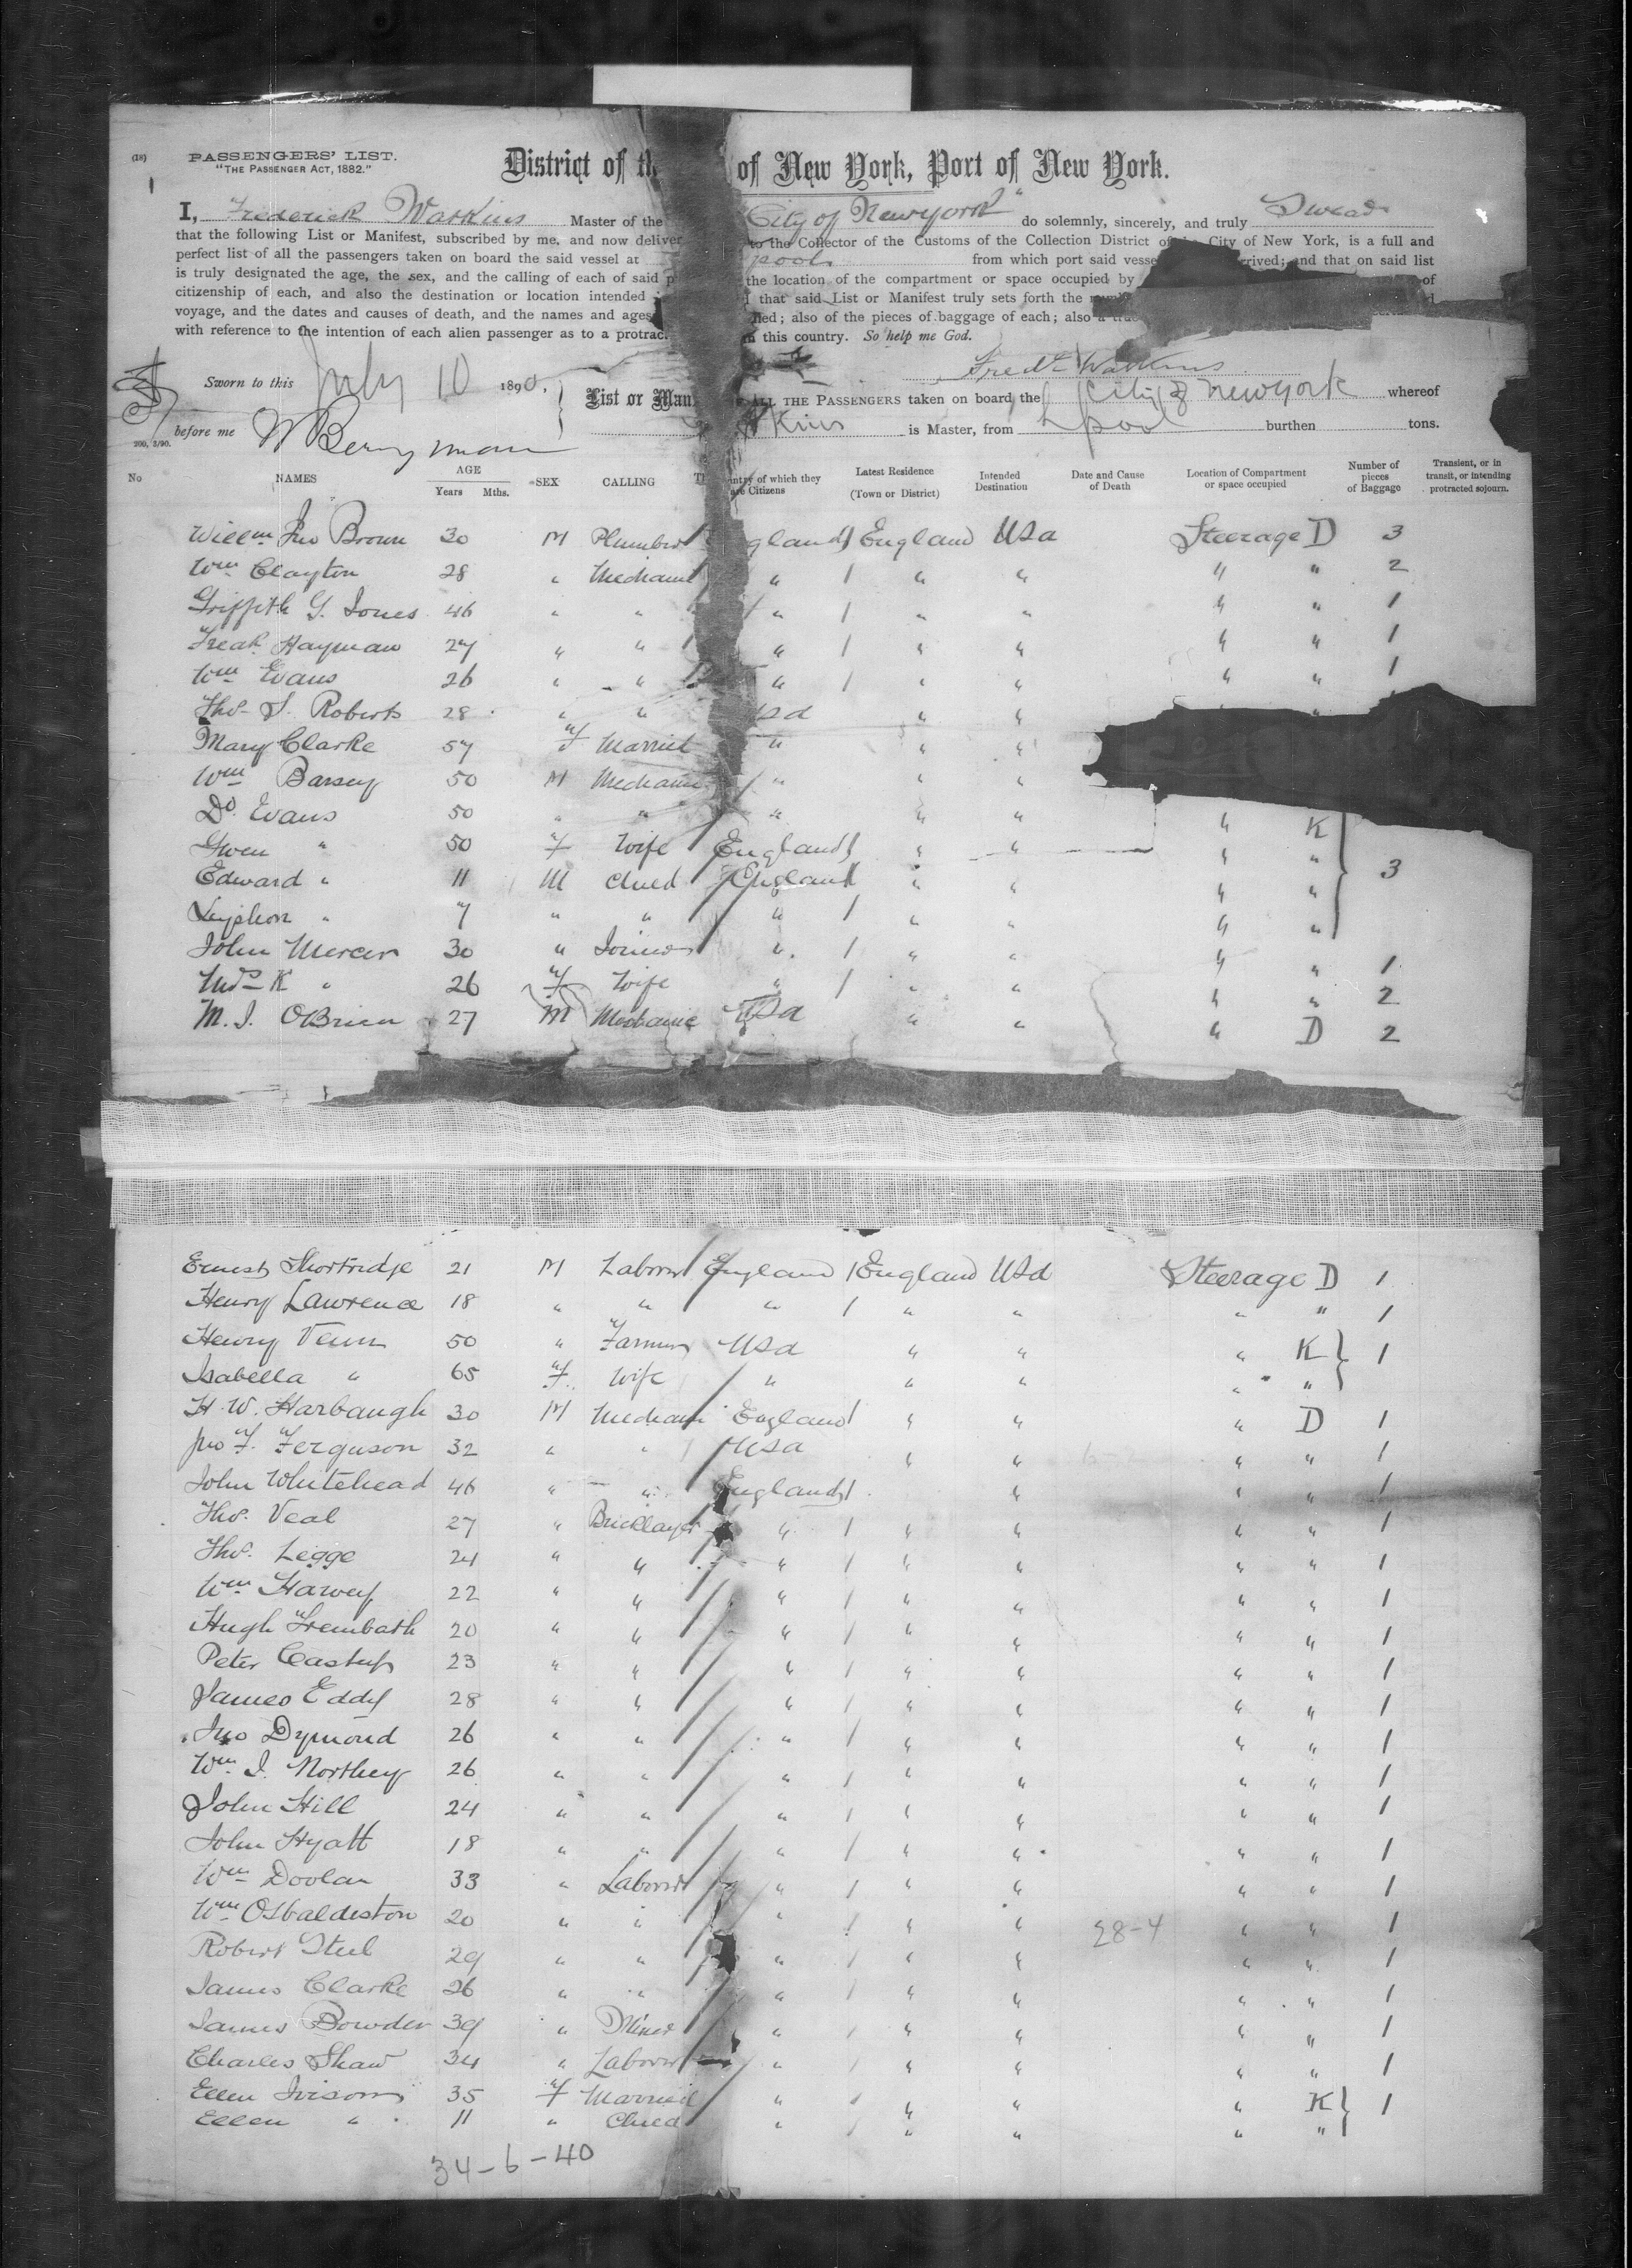 (18)
PASSENGERS' LIST.
"THE PASSENGER ACT, 1882."
1
District of th of New York, Port of New York.
I, Frederick Watkins Master of the "City of Newyork" do solemnly, sincerely, and truly Swear
that the following List or Manifest, subscribed by me, and now deliver to the Collector of the Customs of the Collection District of City of New York, is a full and
perfect list of all the passengers taken on board the said vessel at pool from which port said vesse rrived; and that on said list
is truly designated the age, the sex, and the calling of each of said p the location of the compartment or space occupied by of
citizenship of each, and also the destination or location intended that said List or Manifest truly sets forth the
voyage, and the dates and causes of death, and the names and ages ied; also of the pieces of baggage of each; also a true
with reference to the intention of each alien passenger as to a protrac this country. So help me God.
Fredk Watkins
Sworn to this July 10 1890,
List or Man ALL THE PASSENGERS taken on board the City of Newyork whereof
200, 3/90. before me W Berryman
kins is Master, from Lpool burthen tons.
No NAMES AGE Years Mths. SEX CALLING ntry of which they are Citizens Latest Residence (Town or District) Intended Destination Date and Cause of Death Location of Compartment or space occupied Number of pieces of Baggage Transient, or in transit, or intending protracted sojourn.
Willm Jno Brown 30 M Plumber gland England Usa Steerage D 3
Wm Clayton 28 " Mechanic " / " " " " 2
Griffith G. Jones 46 " " " / " " " " 1
Fredk Hayman 27 " " " / " " " " 1
Wm Evans 26 " " " / " " " " 1
Thos J. Roberts 28 " " sa " " "
Mary Clarke 57 F Married " " "
Wm Barsey 50 M Mechanic " " "
Do Evans 50 " " " " " " K
Gwen " 50 F Wife England " " " "
Edward " 11 M Child England " " " " 3
" 7 " " " / " " " "
John Mercer 30 " Joiner " / " " " " 1
Mrs K " 26 F Wife " / " " " " 2
M. J. OBrien 27 M Mechanic Usa " " " D 2
Ernest Shortridge 21 M Laborer England / England Usa Steerage D 1
Henry Lawrence 18 " " " / " " " " 1
Henry Venn 50 " Farmer Usa " " " K } 1
Isabella " 65 F Wife " " " " "
H. W. Harbaugh 30 M Mechanic England " " " D 1
Jno F. Ferguson 32 " " Usa " " " " 1
John Whitehead 46 " " England " " " 1
Thos. Veal 27 " Bricklayer " / " " " " 1
Thos. Legge 24 " " " / " " " " 1
Wm Harvey 22 " " " / " " " " 1
Hugh Trembath 20 " " " / " " " " 1
Peter Eastup 23 " " " / " " " " 1
James Eddy 28 " " " / " " " " 1
Jno Dymond 26 " " " / " " " " 1
Wm J. Northey 26 " " " / " " " " 1
John Hill 24 " " " / " " " " 1
John Hyatt 18 " " " / " " " " 1
Wm Doolan 33 " Laborer " / " " " " 1
Wm Osbaldeston 20 " " " / " " 28-4 " " 1
Robert Steel 29 " " " / " " " " 1
James Clarke 26 " " " / " " " " 1
James Bowder 39 " Miner " / " " " " 1
Charles Shaw 34 " Laborer " / " " " " 1
Ellen Ivison 35 F Married " / " " " K } 1
Ellen " 11 " Child " / " " " "
34-6-40